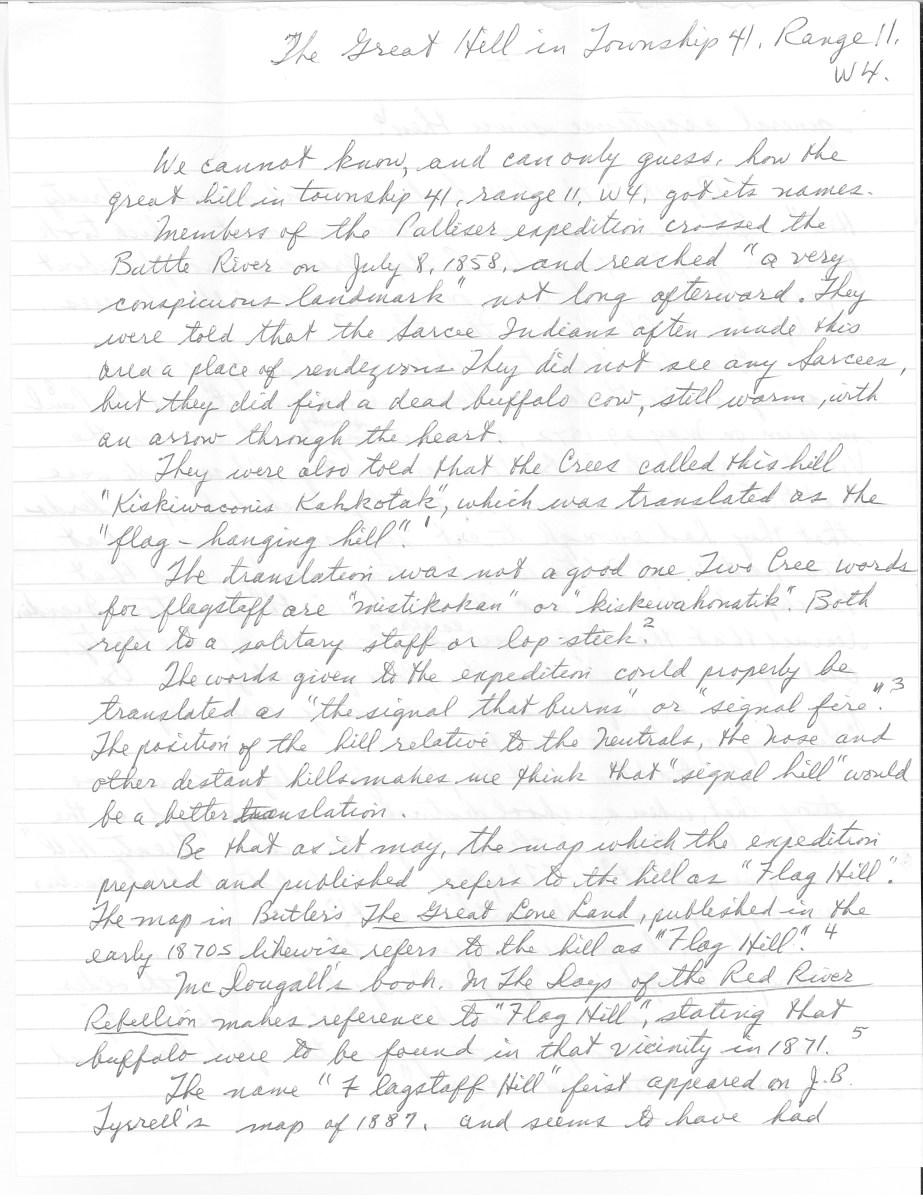 The Great Hill in Township 41, Range 11,
W4.
We cannot know, and can only guess, how the
great hill in township 41, range 11, W4, got its names.
Members of the Palliser expedition crossed the
Battle River on July 8, 1858, and reached "a very
conspicuous landmark" not long afterward. They
were told that the Sarcee Indians often made this
area a place of rendezvous. They did not see any Sarcees,
but they did find a dead buffalo cow, still warm, with
an arrow through the heart.
They were also told that the Crees called this hill
"Kiskiwaconis Kahkotak", which was translated as the
"flag-hanging hill". 1
The translation was not a good one. Two Cree words
for flagstaff are "mistikokan" or "kiskewahonatik". Both
refer to a solitary staff or lop-stick. 2
The words given to the expedition could properly be
translated as "the signal that burns" or "signal fire". 3
The position of the hill relative to the Neutrals, the Nose and
other distant hills makes me think that "signal hill" would
be a better translation.
Be that as it may, the map which the expedition
prepared and published refers to the hill as "Flag Hill".
The map in Butler's The Great Lone Land, published in the
early 1870s likewise refers to the hill as "Flag Hill". 4
McDougall's book, In The Days of the Red River
Rebellion makes reference to "Flag Hill", stating that
buffalo were to be found in that vicinity in 1871. 5
The name "Flagstaff Hill" first appeared on J.B.
Tyrrell's map of 1887, and seems to have had